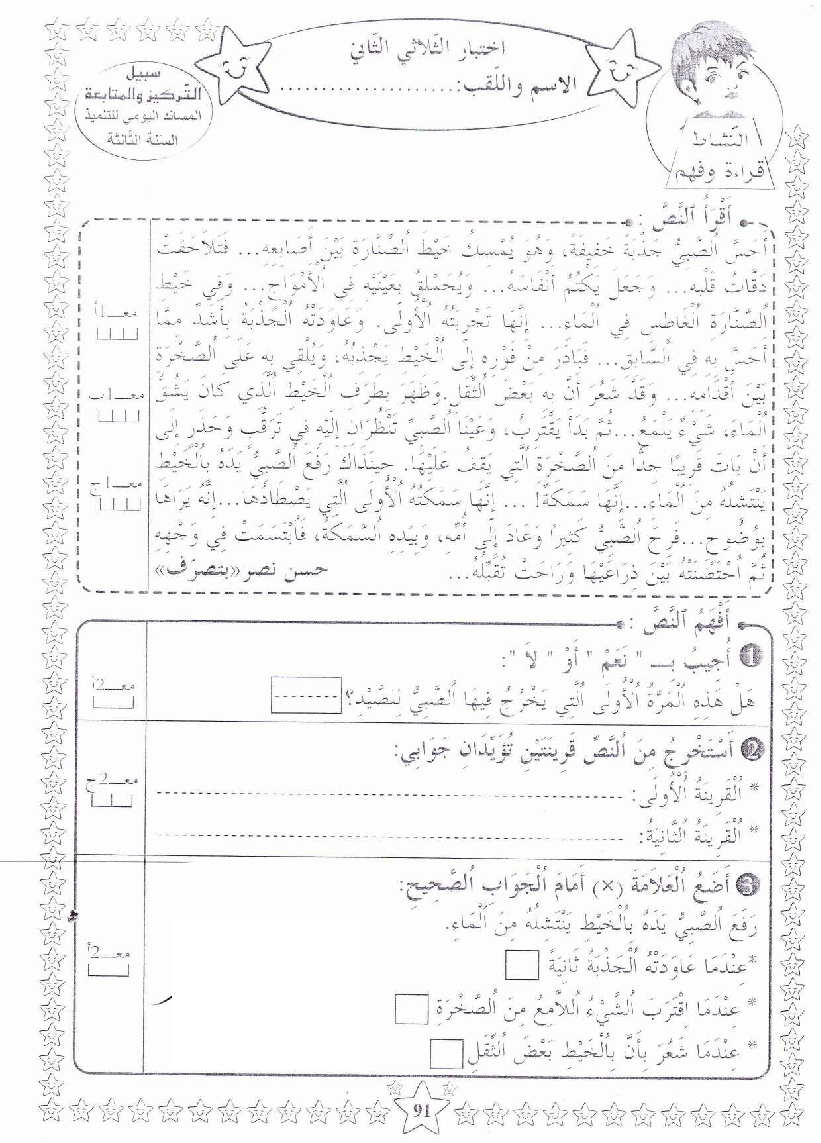 اختبار الثّلاثي الثّاني
الاسم واللّقب:......................
سبيل
التّركيز والمتابعة
المساند اليومي للتلميذ
السنة الثّالثة
النّشاط
قراءة وفهم
أَقْرَأُ النَّصَّ :
أَحَسَّ الصَّبِيُّ جَذْبَةً خَفِيفَةً، وَهُوَ يُمْسِكُ خَيْطَ الصِّنَّارَةِ بَيْنَ أَصَابِعِهِ... فَتَلاَحَقَتْ
دَقَّاتُ قَلْبِهِ... وَجَعَلَ يَكْتُمُ أَنْفَاسَهُ... وَيُحَمْلِقُ بِعَيْنَيْهِ فِي الْأَمْوَاجِ... وَفِي خَيْطِ
الصِّنَّارَةِ الْغَاطِسِ فِي الْمَاءِ... إِنَّهَا تَجْرِبَتُهُ الْأُولَى. وَعَاوَدَتْهُ الْجَذْبَةُ بِأَشَدَّ مِمَّا
أَحَسَّ بِهِ فِي السَّابِقِ... فَبَادَرَ مِنْ فَوْرِهِ إِلَى الْخَيْطِ يَجْذِبُهُ، وَيُلْقِي بِهِ عَلَى الصَّخْرَةِ
بَيْنَ أَقْدَامِهِ... وَقَدْ شَعُرَ أَنَّ بِهِ بَعْضَ الثِّقَلِ.وَظَهَرَ بِطَرَفِ الْخَيْطِ الَّذِي كَانَ يَشُقُّ
الْمَاءَ، شَيْءٌ يَلْمَعُ...ثُمَّ بَدَأَ يَقْتَرِبُ، وَعَيْنَا الصَّبِيِّ تَنْظُرَانِ إِلَيْهِ فِي تَرَقُّبٍ وَحَذَرٍ إِلَى
أَنْ بَاتَ قَرِيبًا جِدًّا مِنَ الصَّخْرَةِ الَّتِي يَقِفُ عَلَيْهَا. حِينَذَاكَ رَفَعَ الصَّبِيُّ يَدَهُ بِالْخَيْطِ
يَنْتَشِلُهُ مِنَ الْمَاءِ...إِنَّهَا سَمَكَةٌ! ... إِنَّهَا سَمَكَتُهُ الْأُولَى الَّتِي يَصْطَادُهَا...إِنَّهُ يَرَاهَا
بِوُضُوحٍ...فَرِحَ الصَّبِيُّ كَثِيرًا وَعَادَ إِلَى أُمِّهِ، وَبِيَدِهِ السَّمَكَةُ، فَابْتَسَمَتْ فِي وَجْهِهِ
ثُمَّ احْتَضَنَتْهُ بَيْنَ ذِرَاعَيْهَا وَرَاحَتْ تُقَبِّلُهُ... حسن نصر «بتصرّف»
معـ1أ
معـ1ب
معـ1ج
أَفْهَمُ النَّصَّ :
1 أُجِيبُ بـ " نَعَمْ " أَوْ " لاَ ":
هَلْ هَذِهِ الْمَرَّةُ الْأُولَى الَّتِي يَخْرُجُ فِيهَا الصَّبِيُّ لِلصَّيْدِ؟ ---------
معـ2أ
2 أَسْتَخْرِجُ مِنَ النَّصِّ قَرِينَتَيْنِ تُؤَيِّدَانِ جَوَابِي:
* الْقَرِينَةُ الْأُولَى: ---------
* الْقَرِينَةُ الثَّانِيَةُ: ---------
معـ2ج
3 أَضَعُ الْعَلاَمَةَ (×) أَمَامَ الْجَوَابِ الصَّحِيحِ:
رَفَعَ الصَّبِيُّ يَدَهُ بِالْخَيْطِ يَنْتَشِلُهُ مِنَ الْمَاءِ.
*عِنْدَمَا عَاوَدَتْهُ الْجَذْبَةُ ثَانِيَةً
* عِنْدَمَا اقْتَرَبَ الشَّيْءُ اللاَّمِعُ مِنَ الصَّخْرَةِ
* عِنْدَمَا شَعُرَ بِأَنَّ بِالْخَيْطِ بَعْضَ الثِّقَلِ
معـ2أ
91